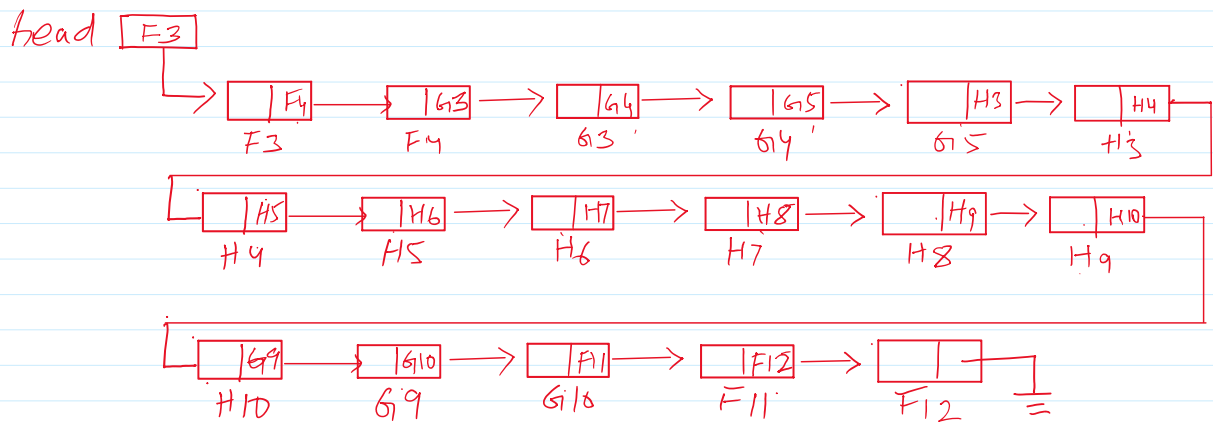 head F3
F4 G3 G4 G5 H3 H4
F3 F4 G3 G4 G5 H3
H5 H6 H7 H8 H9 H10
H4 H5 H6 H7 H8 H9
G9 G10 F11 F12
H10 G9 G10 F11 F12